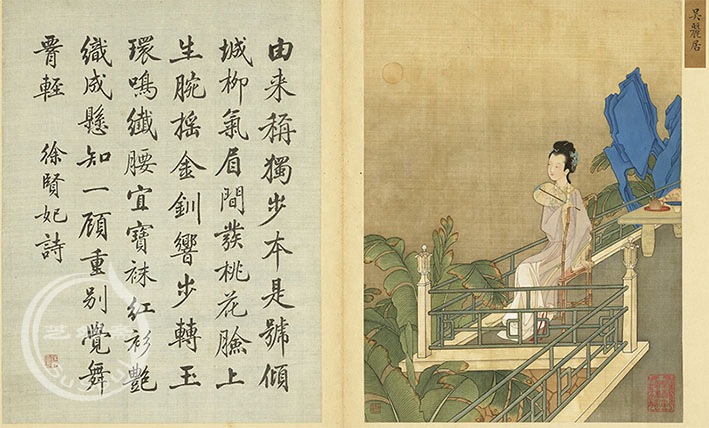 由来稱獨步本是號傾
城柳氣眉間發桃花臉上
生腕摇金釧響步轉玉
環鳴纖腰宜寶袜紅衫艷
織成懸知一顧重别覺舞
輕 徐賢妃詩
吳麗居